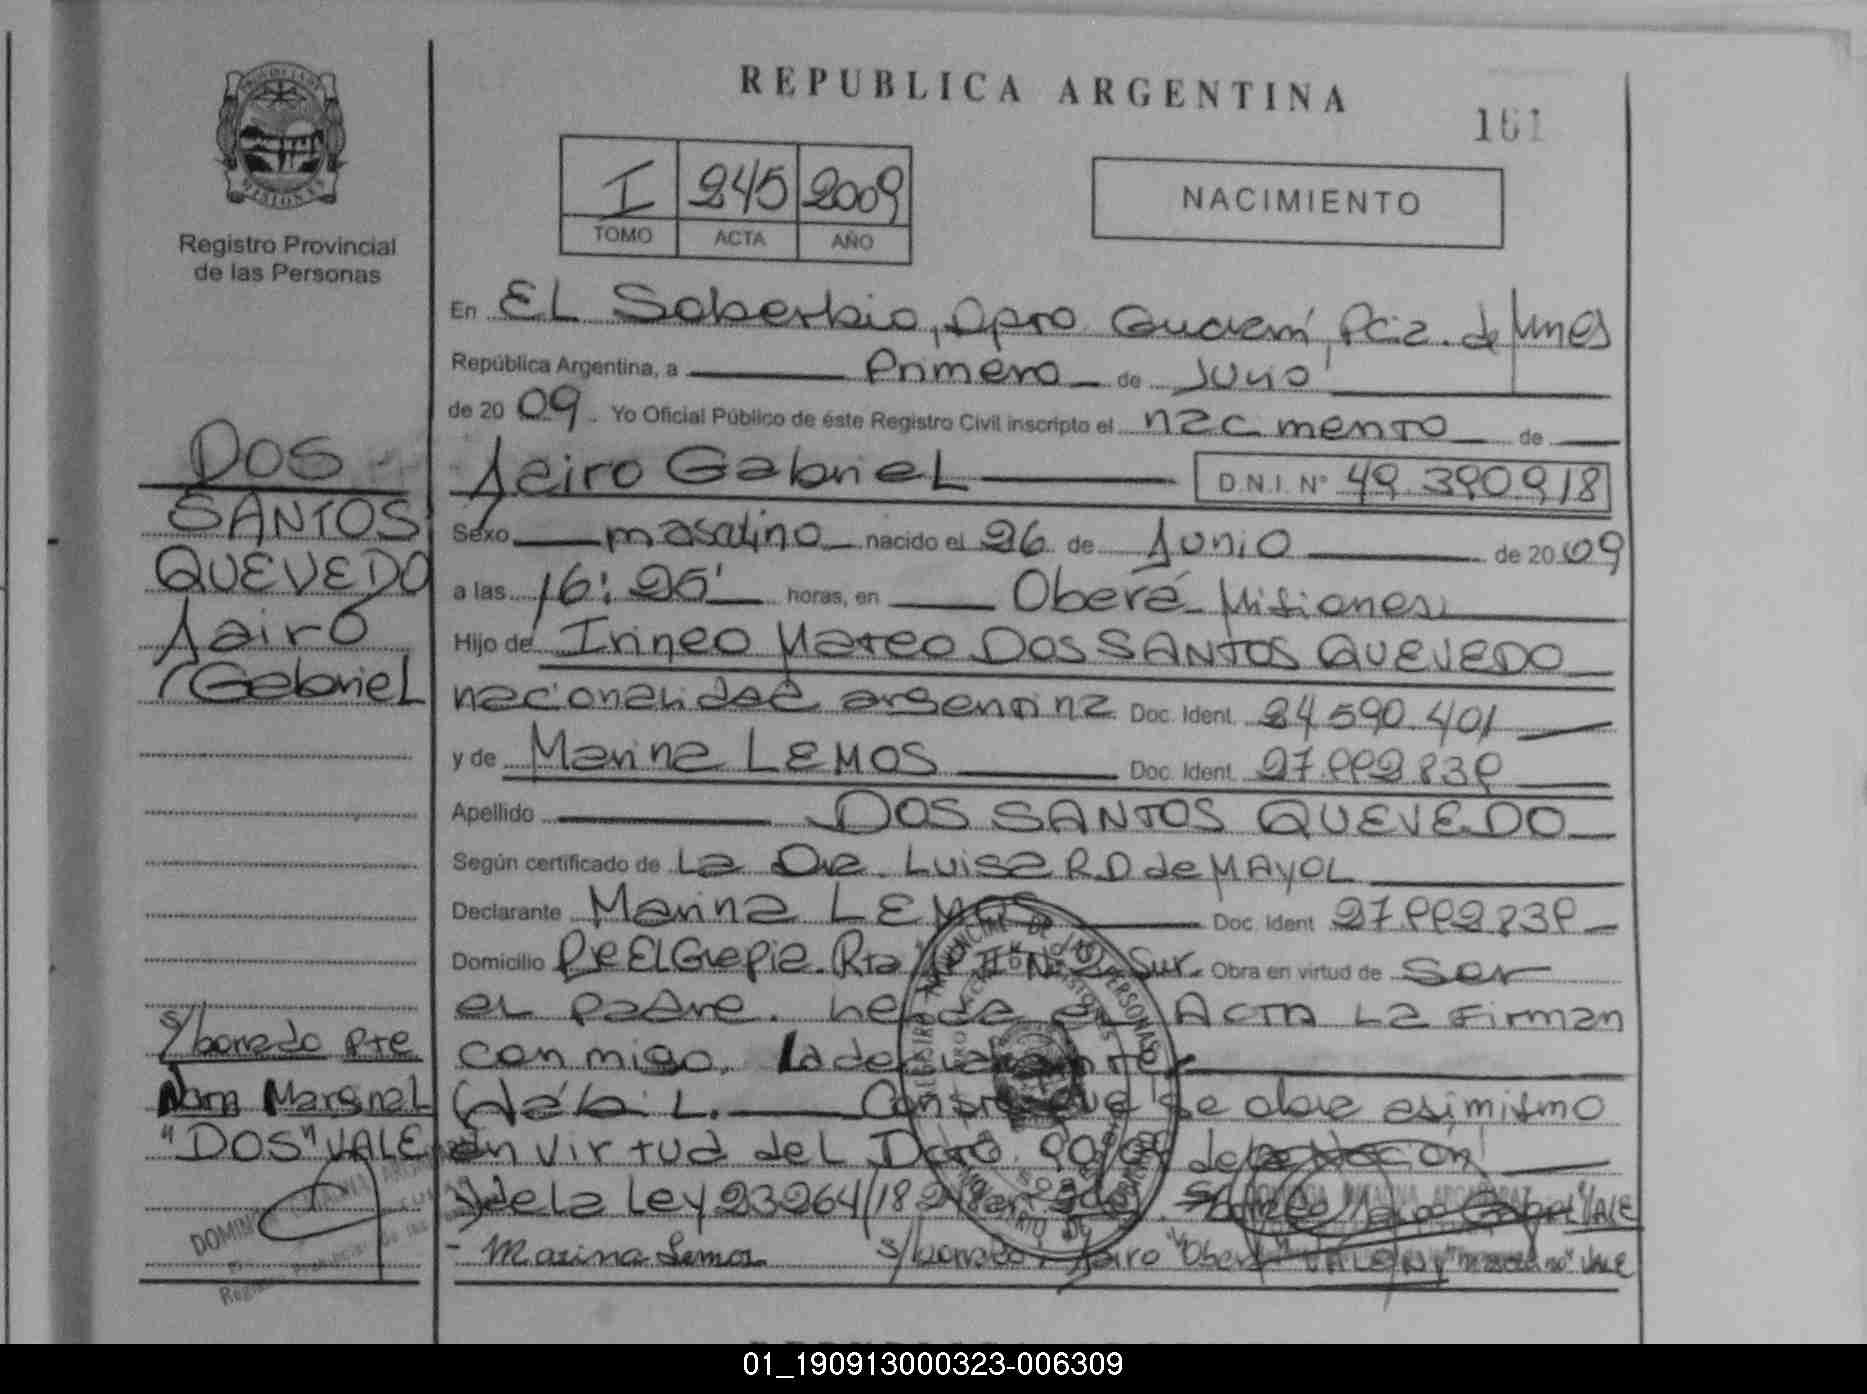 REPUBLICA ARGENTINA
161
I 245 2009
TOMO ACTA AÑO
NACIMIENTO
Registro Provincial
de las Personas
En EL Soberbio, Dpto Guaraní, Pcia. de Mnes
República Argentina, a Primero de Julio
de 20 09. Yo Oficial Público de éste Registro Civil inscripto el nacimiento de
Jairo Gabriel D.N.I. N° 49.390918
Sexo masculino nacido el 26 de Junio de 20 09
a las 16:25 horas, en Oberá Misiones
Hijo de Irineo Mateo DOS SANTOS QUEVEDO
nacionalidad argentina Doc. Ident. 24 590.401
y de Marina LEMOS Doc. Ident.
Apellido DOS SANTOS QUEVEDO
Según certificado de La Dra. Luisa R.D de MAYOL
Declarante Marina LEMOS Doc. Ident
Domicilio Sur. Obra en virtud de Ser
el padre. Leída el Acta La Firman
conmigo. La declarante
Habil. Conste que se obra asimismo
en virtud del Dcto. de
de la Ley 23264/18 248
- Marina Lemos s/borrado: Jairo "Oberá" VALEN y "masculino" VALE
DOS
SANTOS
QUEVEDO
Jairo
Gabriel
s/borrado Pte
Nota Marginal
"DOS" VALE
01_190913000323-006309